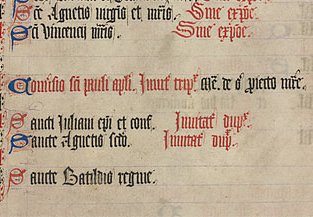 Sc̄e Agnetis uirgīs et mr̄is. Sine expōe.
Sc̄i Vincencij mr̄is. Sine expōe.
Conūsio sc̄i pauli apl̄i. Inuit̄ trip̄
Sancti Iuliani ep̄i et conf. Inuitat̄ dup̄.
Sancte Agnetis sc̄do. Inuitat̄ dup̄.
Sancte Batildis regine.